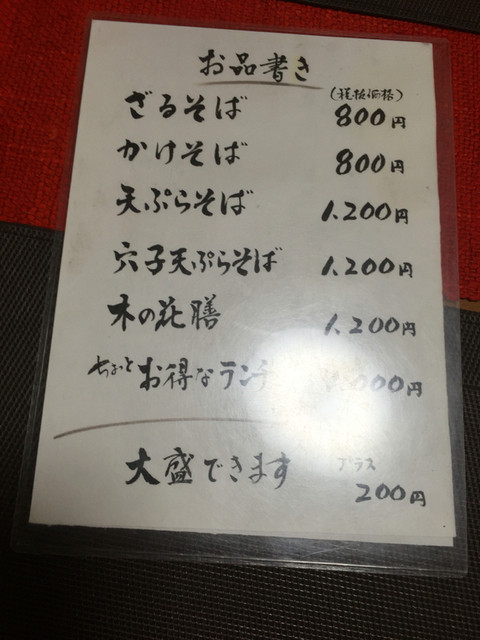 お品書き
(税抜価格)
ざるそば 800円
かけそば 800円
天ぷらそば 1,200円
穴子天ぷらそば 1,200円
木の花膳 1,200円
ちょっとお得なランチ 000円
大盛できます プラス 200円